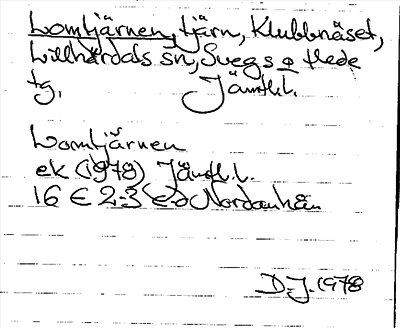 Lomtjärnen, tjärn, Klubbnäset,
Lillhärdals sn, Svegs o Hede
tg, Jämtl.l.
Lomtjärnen
ek (1978) Jämtl.l.
16 E 2-3 Nordanhån
D.J. 1978